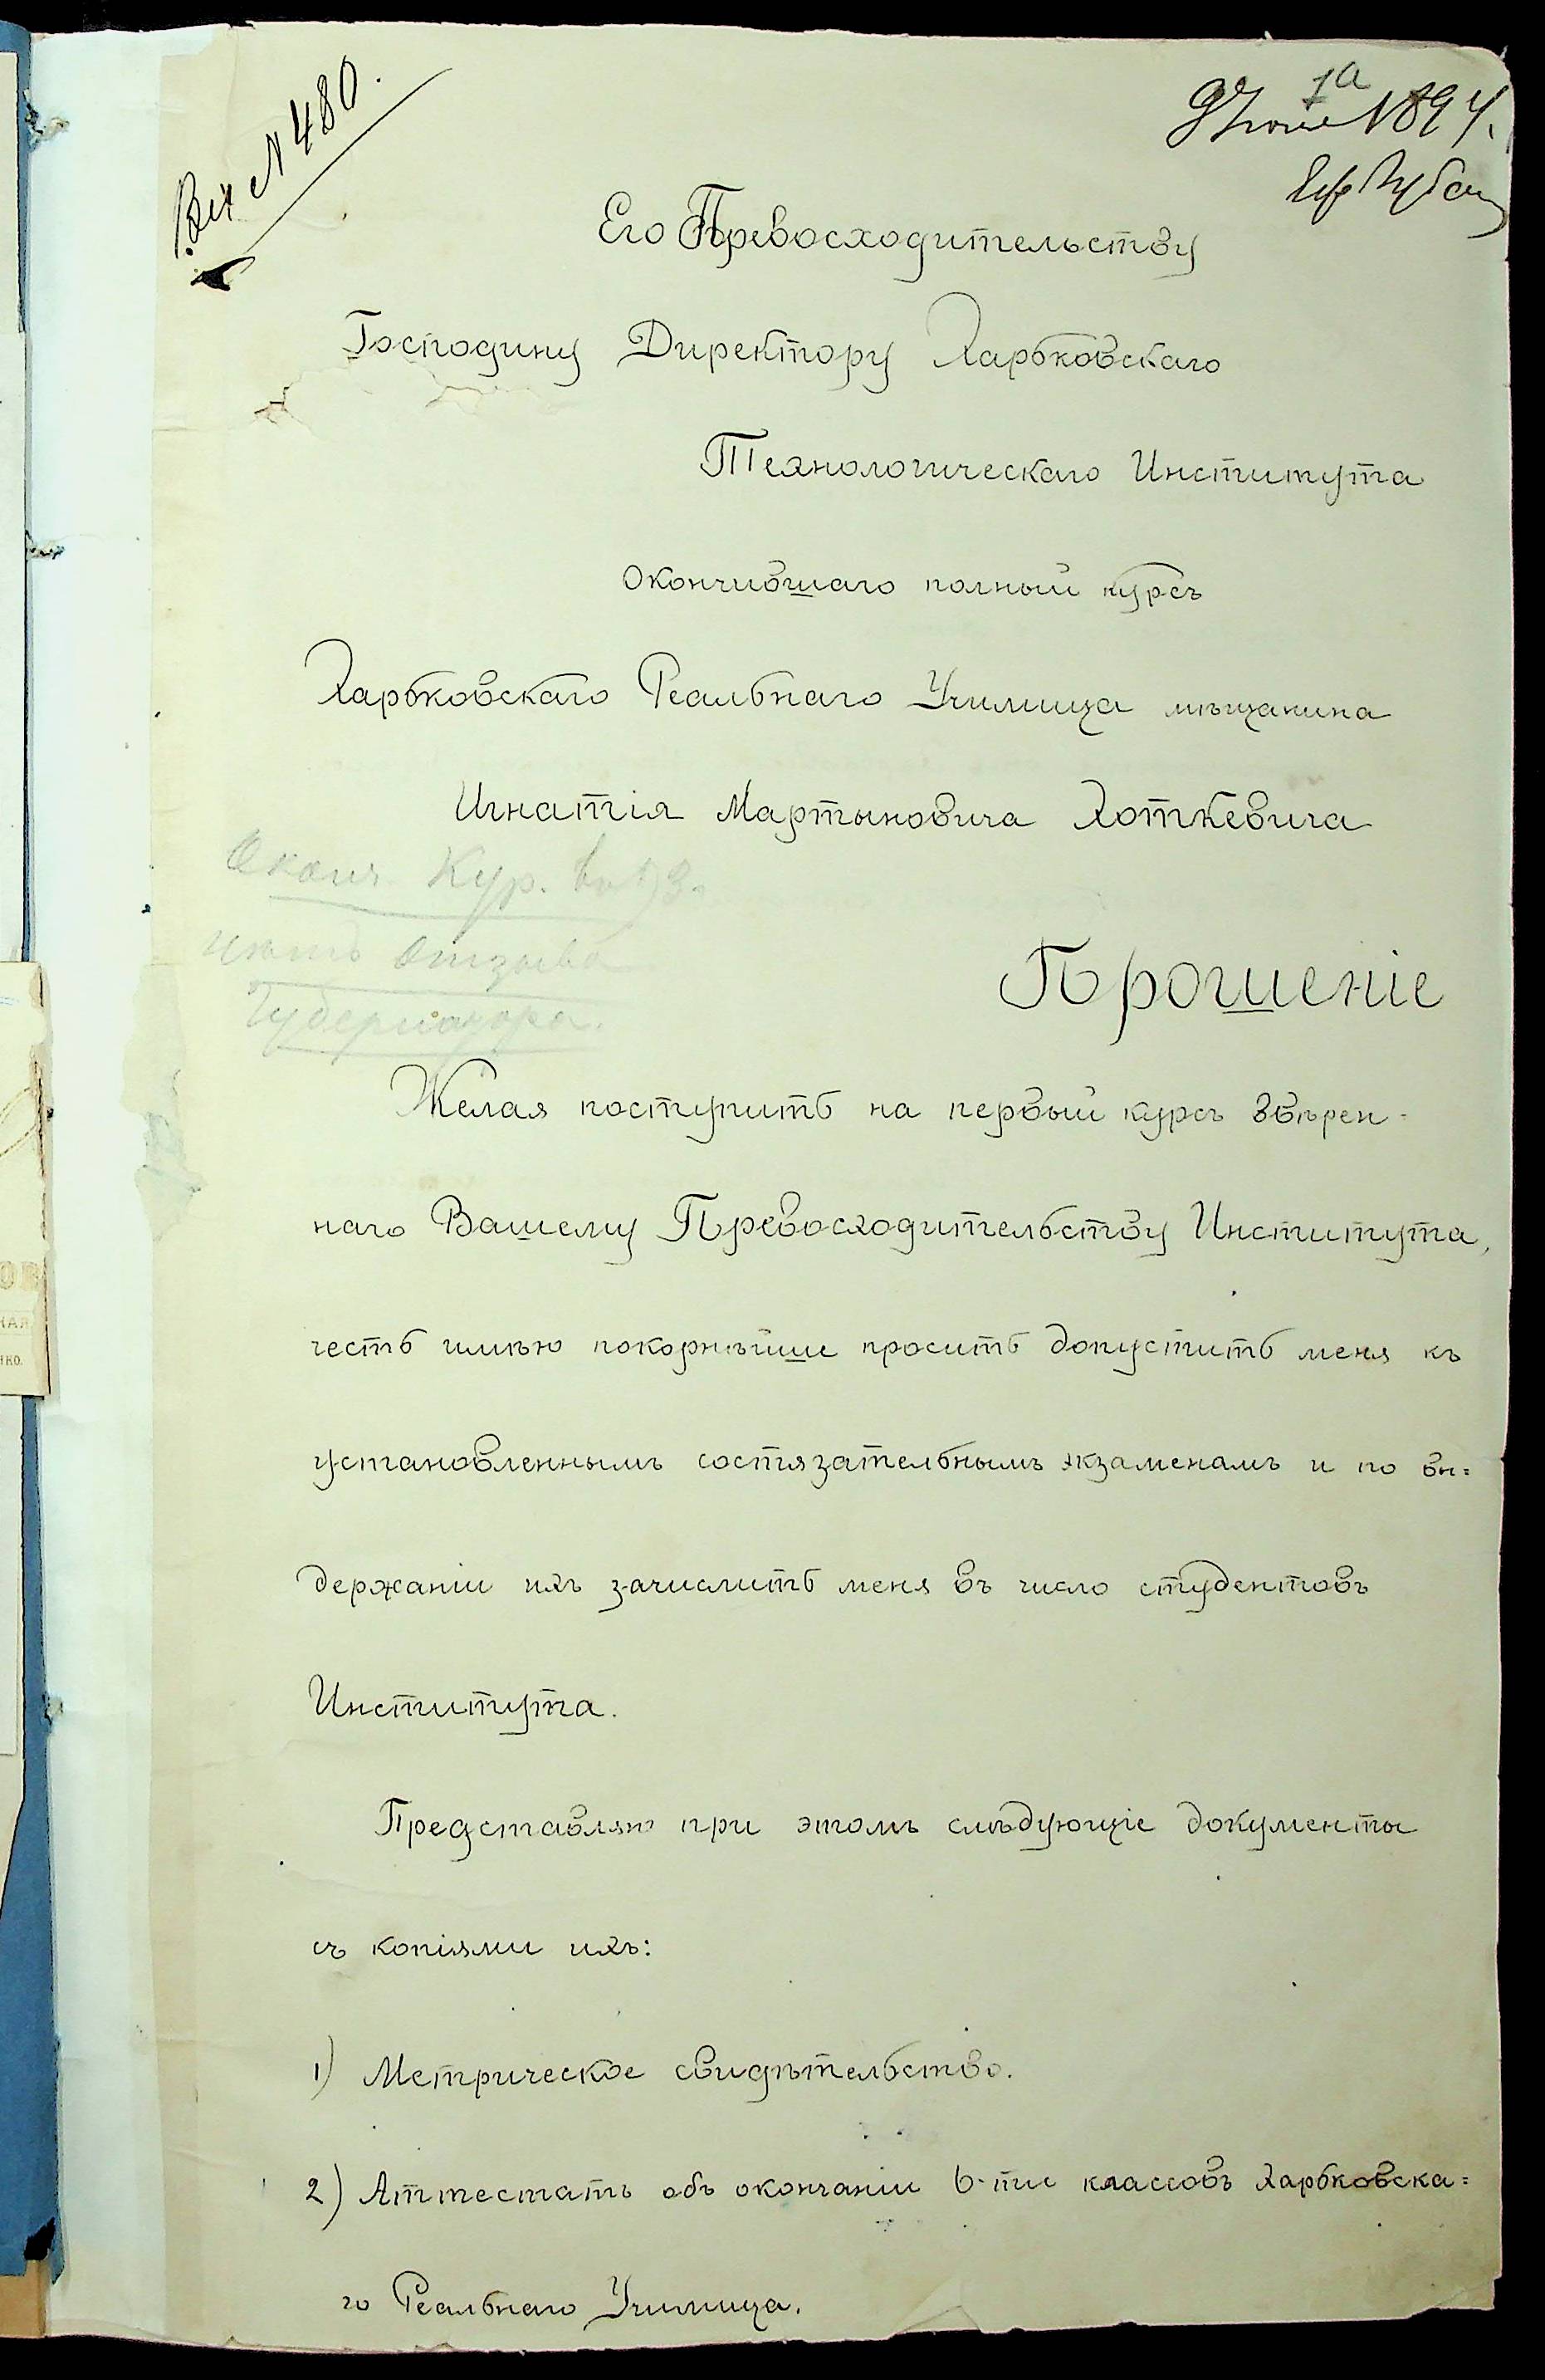 Вх № 480.
1а
9 Іюня 1894.
Его Превосходительству
Господину Директору Харьковскаго
Технологическаго Института
Окончившаго полный курсъ
Харьковскаго Реальнаго Училища мѣщанина
Игнатія Мартыновича Хоткевича
Оконч. Кур. въ 93.
нѣтъ отзыва
Губернатора.
Прошеніе
Желая поступить на первый курсъ ввѣрен-
наго Вашему Превосходительству Института,
честь имѣю покорнѣйше просить допустить меня къ
установленнымъ состязательнымъ экзаменамъ и по вы=
держаніи ихъ зачислить меня въ число студентовъ
Института.
Представляю при этомъ слѣдующіе документы
съ копіями ихъ:
1) Метрическое свидѣтельство.
2) Аттестатъ объ окончаніи 6-ти классовъ Харьковска=
го Реальнаго Училища.